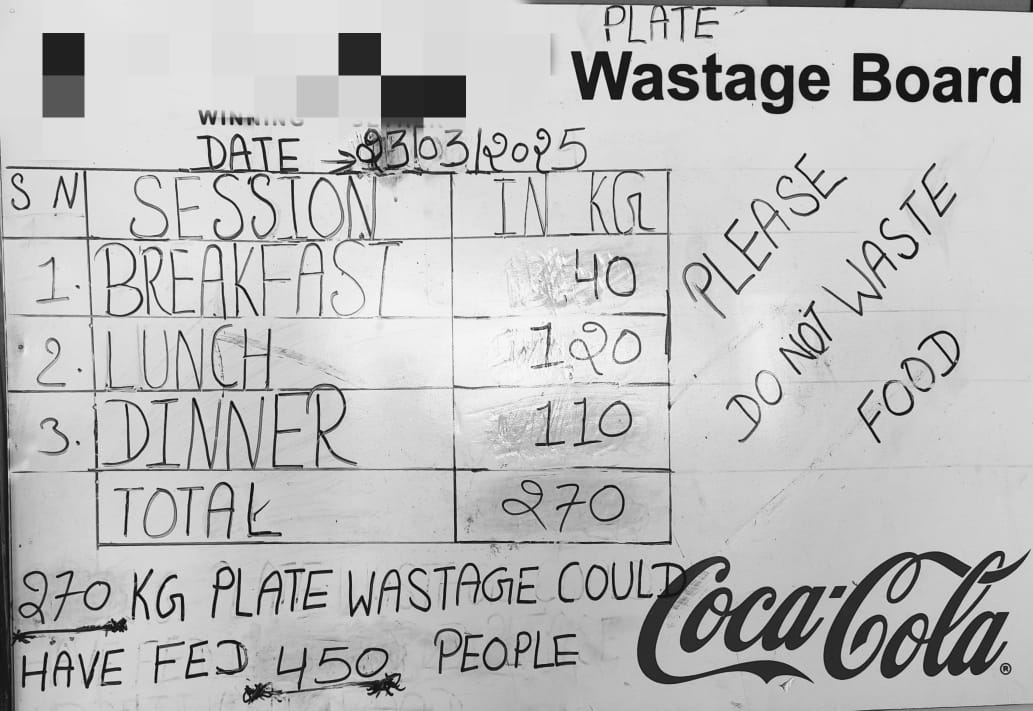 PLATE
Wastage Board
WINNING
DATE → 23/03/2025
S N SESSION IN KG
1. BREAKFAST 40
2. LUNCH 120
3. DINNER 110
TOTAL 270
PLEASE
DO NOT WASTE
FOOD
270 KG PLATE WASTAGE COULD
HAVE FED 450 PEOPLE
Coca-Cola®